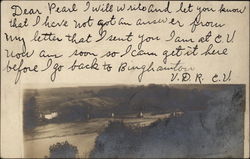 Dear Pearl I will write and let you know
that I have not got an answer from
my letter that I sent you I am at C.V
now an soon so I can get it here
before I go back to Binghamton
V.D.R. C.V.